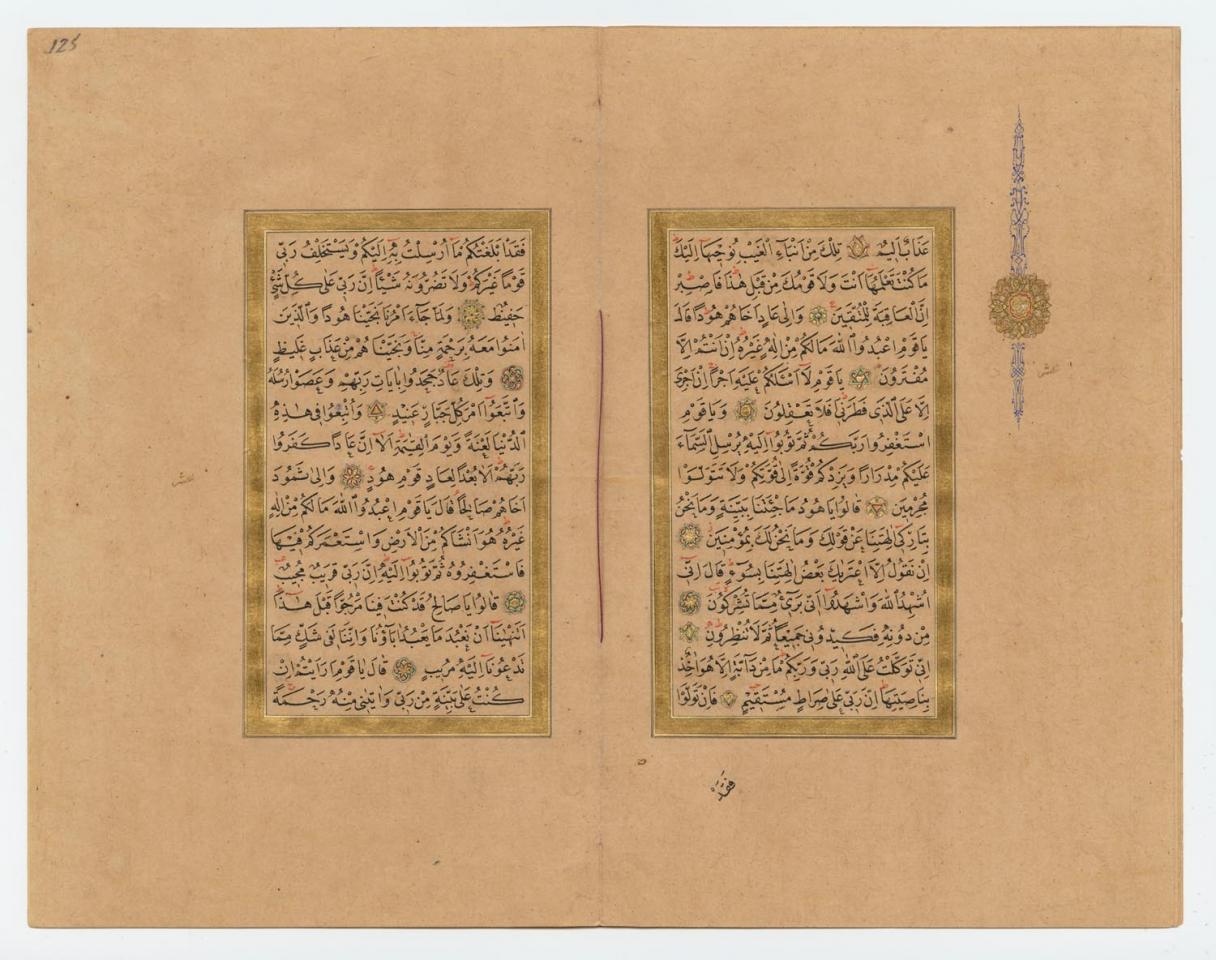 عَذَابٌ اَلِيمٌ تِلْكَ مِنْ اَنْبَاءِ الْغَيْبِ نُوحِيهَا اِلَيْكَ
مَا كُنْتَ تَعْلَمُهَا اَنْتَ وَلَا قَوْمُكَ مِنْ قَبْلِ هٰذَا فَاصْبِرْ
اِنَّ الْعَاقِبَةَ لِلْمُتَّقِينَ وَاِلٰى عَادٍ اَخَاهُمْ هُودًا قَالَ
يَا قَوْمِ اعْبُدُوا اللّٰهَ مَا لَكُمْ مِنْ اِلٰهٍ غَيْرُهُ اِنْ اَنْتُمْ اِلَّا
مُفْتَرُونَ يَا قَوْمِ لَا اَسْئَلُكُمْ عَلَيْهِ اَجْرًا اِنْ اَجْرِىَ
اِلَّا عَلَى الَّذِى فَطَرَنِى اَفَلَا تَعْقِلُونَ وَيَا قَوْمِ
اسْتَغْفِرُوا رَبَّكُمْ ثُمَّ تُوبُوا اِلَيْهِ يُرْسِلِ السَّمَاءَ
عَلَيْكُمْ مِدْرَارًا وَيَزِدْكُمْ قُوَّةً اِلٰى قُوَّتِكُمْ وَلَا تَتَوَلَّوْا
مُجْرِمِينَ قَالُوا يَا هُودُ مَا جِئْتَنَا بِبَيِّنَةٍ وَمَا نَحْنُ
بِتَارِكِى اٰلِهَتِنَا عَنْ قَوْلِكَ وَمَا نَحْنُ لَكَ بِمُؤْمِنِينَ
اِنْ نَقُولُ اِلَّا اعْتَرٰيكَ بَعْضُ اٰلِهَتِنَا بِسُوءٍ قَالَ اِنِّى
اُشْهِدُ اللّٰهَ وَاشْهَدُوا اَنِّى بَرِىءٌ مِمَّا تُشْرِكُونَ
مِنْ دُونِهِ فَكِيدُونِى جَمِيعًا ثُمَّ لَا تُنْظِرُونِ
اِنِّى تَوَكَّلْتُ عَلَى اللّٰهِ رَبِّى وَرَبِّكُمْ مَا مِنْ دَابَّةٍ اِلَّا هُوَ اٰخِذٌ
بِنَاصِيَتِهَا اِنَّ رَبِّى عَلٰى صِرَاطٍ مُسْتَقِيمٍ فَاِنْ تَوَلَّوْا
فَقَدْ
عشر
125
فَقَدْ اَبْلَغْتُكُمْ مَا اُرْسِلْتُ بِهِ اِلَيْكُمْ وَيَسْتَخْلِفُ رَبِّى
قَوْمًا غَيْرَكُمْ وَلَا تَضُرُّونَهُ شَيْئًا اِنَّ رَبِّى عَلٰى كُلِّ شَىْءٍ
حَفِيظٌ وَلَمَّا جَاءَ اَمْرُنَا نَجَّيْنَا هُودًا وَالَّذِينَ
اٰمَنُوا مَعَهُ بِرَحْمَةٍ مِنَّا وَنَجَّيْنَاهُمْ مِنْ عَذَابٍ غَلِيظٍ
وَتِلْكَ عَادٌ جَحَدُوا بِاٰيَاتِ رَبِّهِمْ وَعَصَوْا رُسُلَهُ
وَاتَّبَعُوا اَمْرَ كُلِّ جَبَّارٍ عَنِيدٍ وَاُتْبِعُوا فِى هٰذِهِ
الدُّنْيَا لَعْنَةً وَيَوْمَ الْقِيٰمَةِ اَلَا اِنَّ عَادًا كَفَرُوا
رَبَّهُمْ اَلَا بُعْدًا لِعَادٍ قَوْمِ هُودٍ وَاِلٰى ثَمُودَ
اَخَاهُمْ صَالِحًا قَالَ يَا قَوْمِ اعْبُدُوا اللّٰهَ مَا لَكُمْ مِنْ اِلٰهٍ
غَيْرُهُ هُوَ اَنْشَاَكُمْ مِنَ الْاَرْضِ وَاسْتَعْمَرَكُمْ فِيهَا
فَاسْتَغْفِرُوهُ ثُمَّ تُوبُوا اِلَيْهِ اِنَّ رَبِّى قَرِيبٌ مُجِيبٌ
قَالُوا يَا صَالِحُ قَدْ كُنْتَ فِينَا مَرْجُوًّا قَبْلَ هٰذَا
اَتَنْهٰينَا اَنْ نَعْبُدَ مَا يَعْبُدُ اٰبَاؤُنَا وَاِنَّنَا لَفِى شَكٍّ مِمَّا
تَدْعُونَا اِلَيْهِ مُرِيبٍ قَالَ يَا قَوْمِ اَرَاَيْتُمْ اِنْ
كُنْتُ عَلٰى بَيِّنَةٍ مِنْ رَبِّى وَاٰتٰينِى مِنْهُ رَحْمَةً
عشر